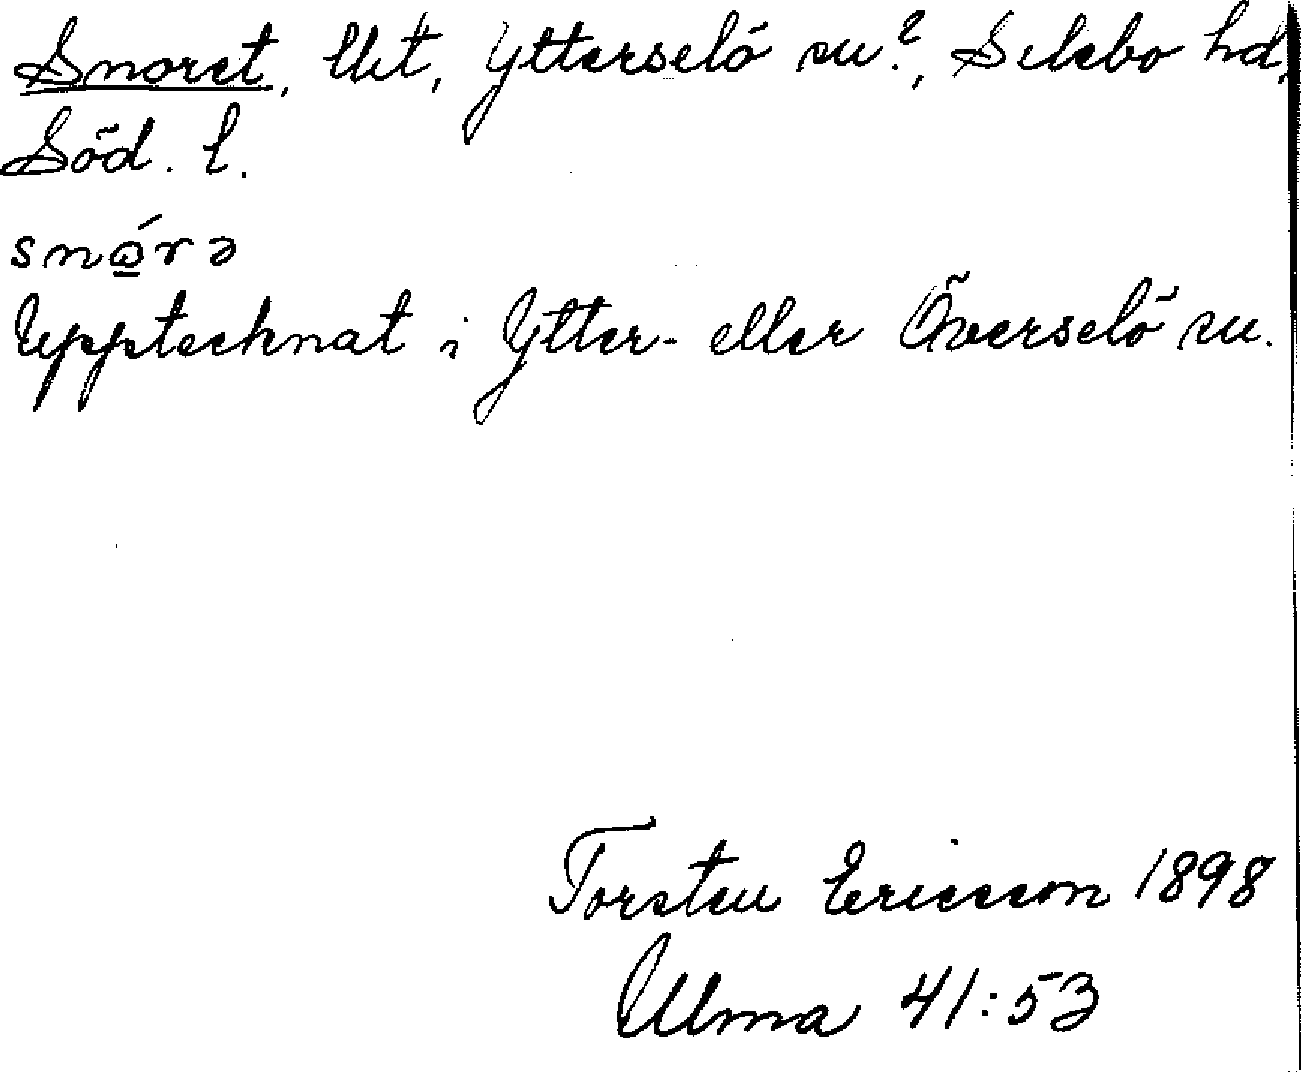 Snoret, Ut, Ytterselö sn?, Selebo hd,
Söd. l.
snǫ́rə
Upptecknat i Ytter- eller Överselö sn.
Torsten Ericsson 1898
Ulma 41:53